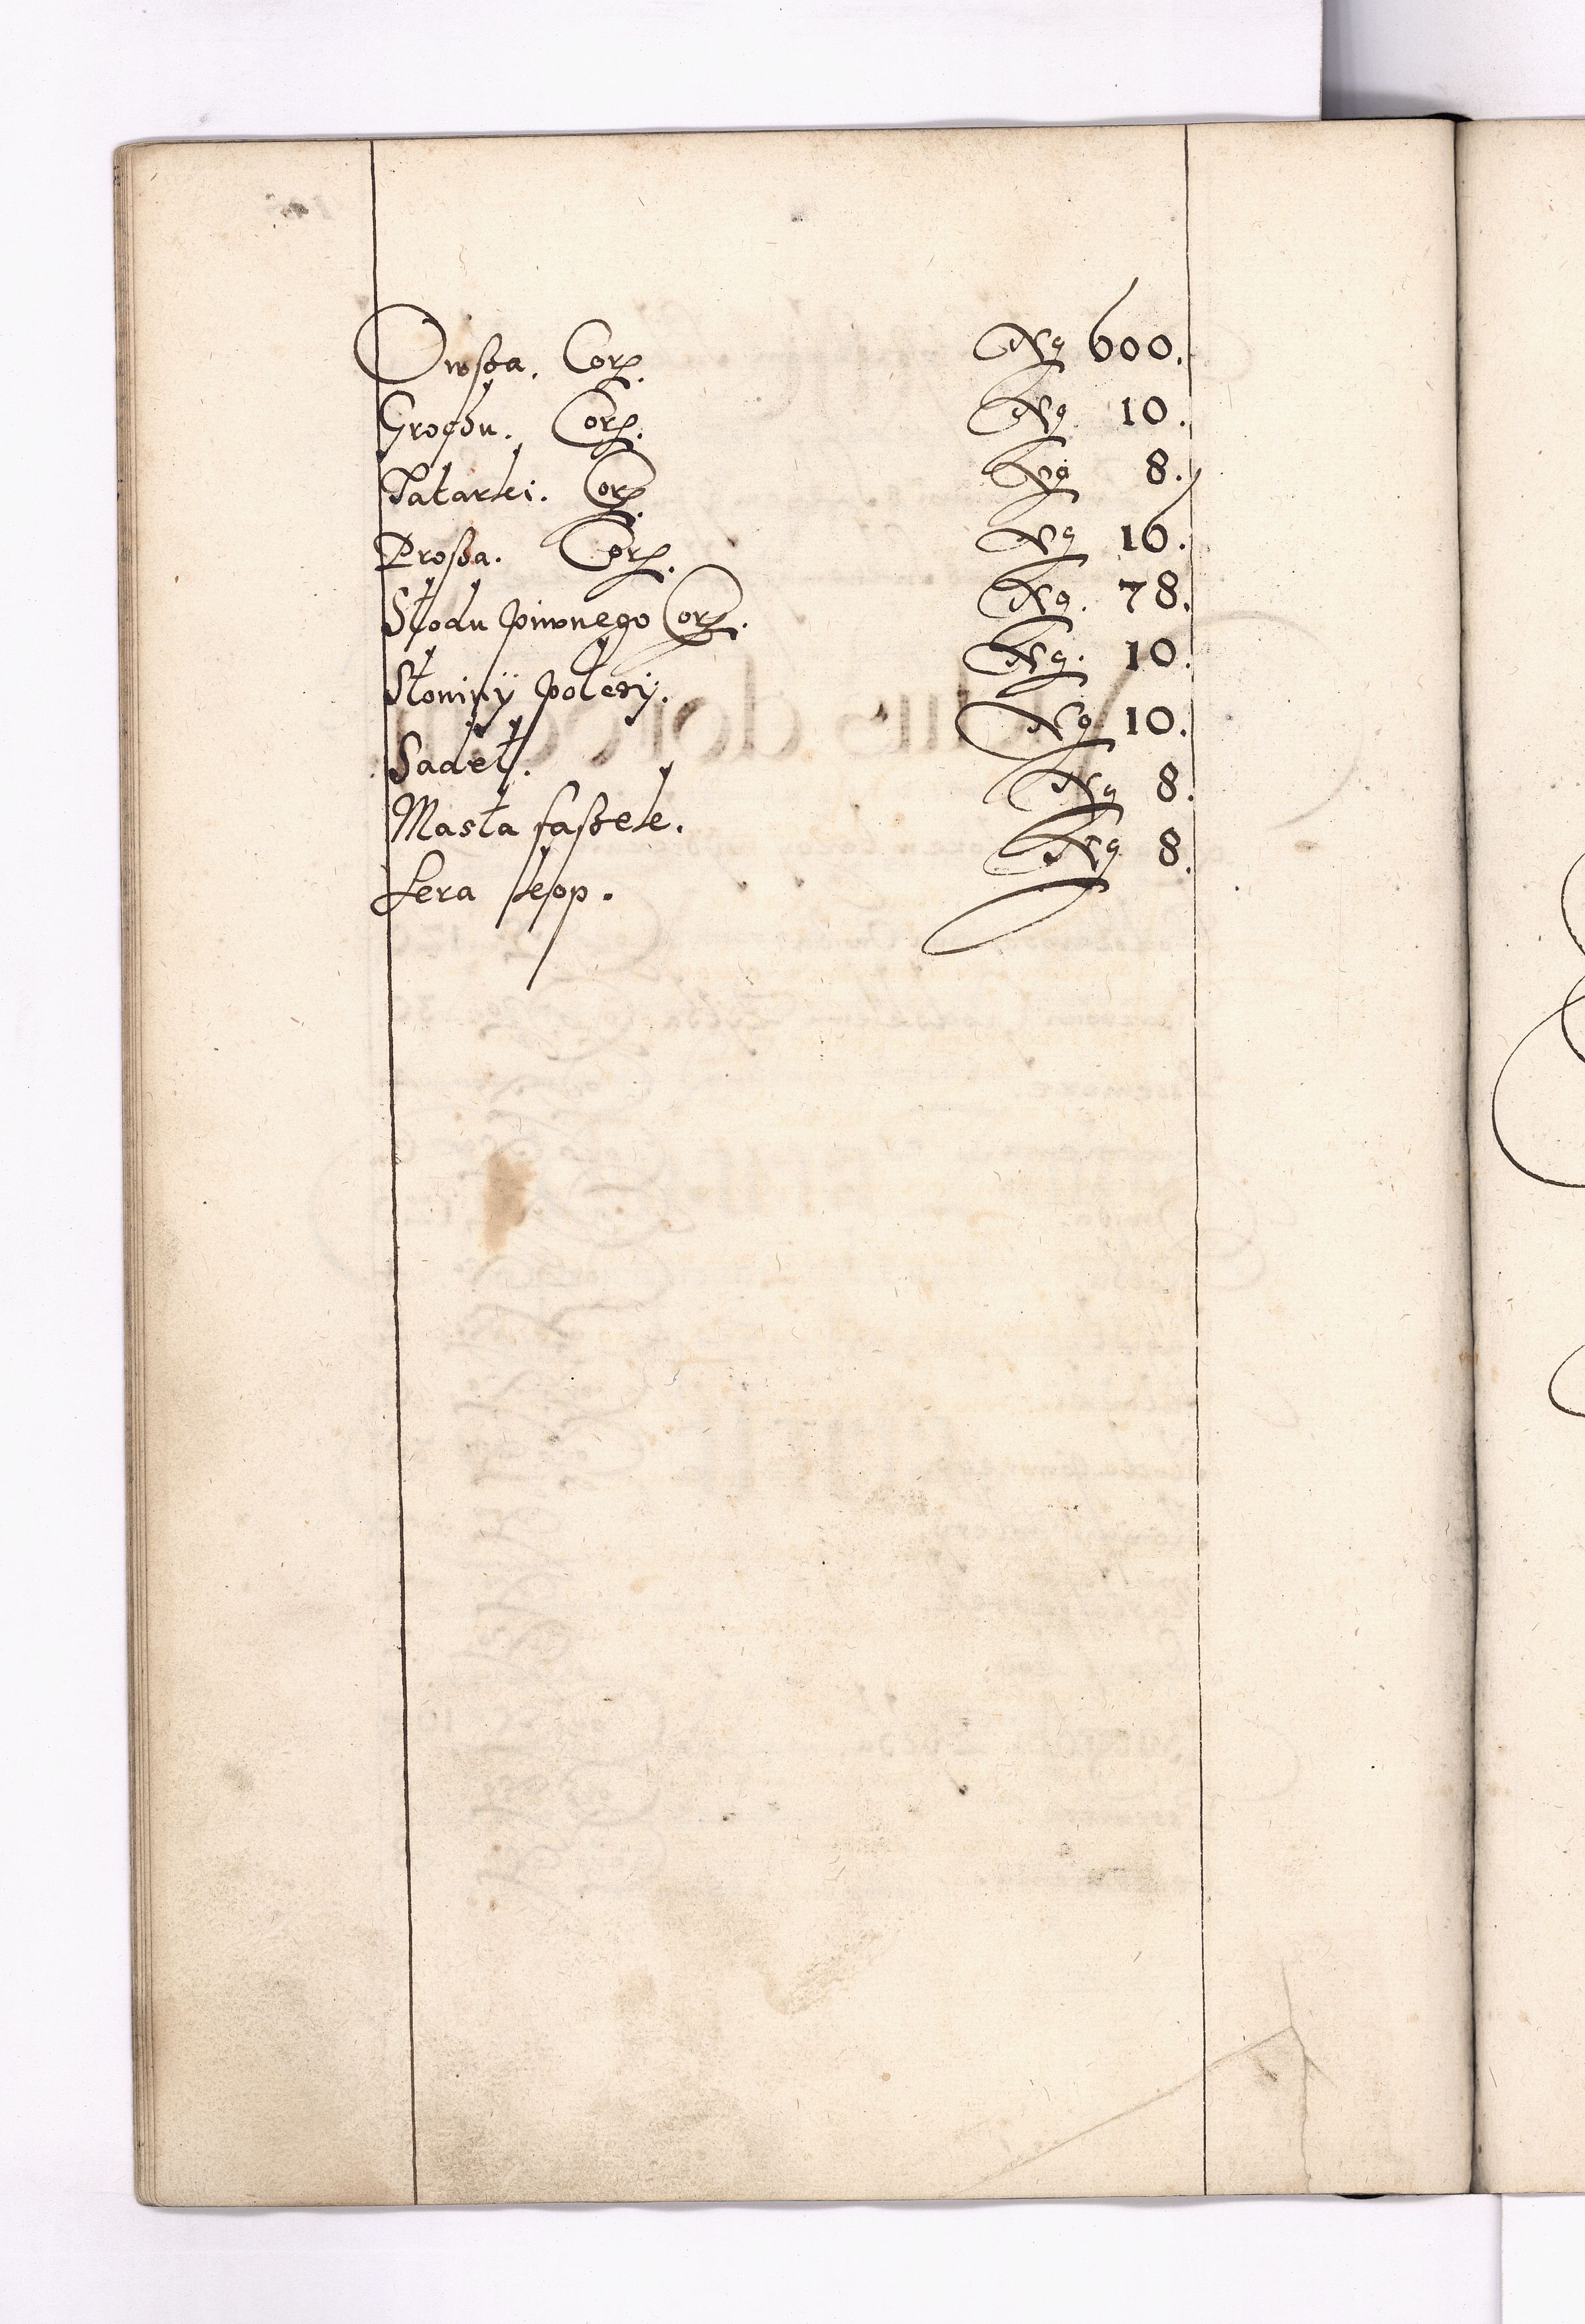 Owsza. Corz. No 600.
Grochu. Corz. No 10.
Tatarki. Corz. No 8.
Prosza. Corz. No 16.
Słodu piwnego Corz. No. 78.
Słoniny połczy. No. 10.
Sadeł. No 10.
Masła faszek. No 8.
Sera kop. No 8.